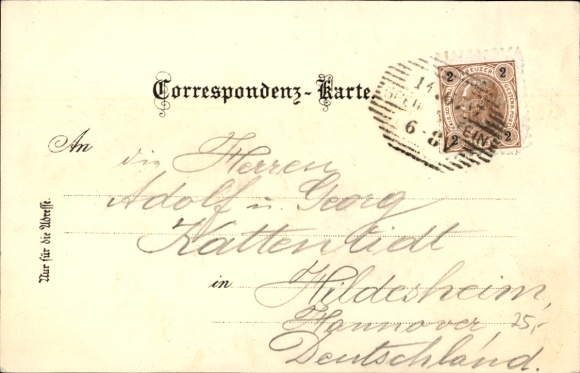 Correspondenz-Karte.
2 KREUZER 2
2 2
14
6
6-8
EINS
An die Herren
Adolf u. Georg
Kattentidt
in Hildesheim,
Hannover, 25,-
Deutschland.
Nur für die Adresse.